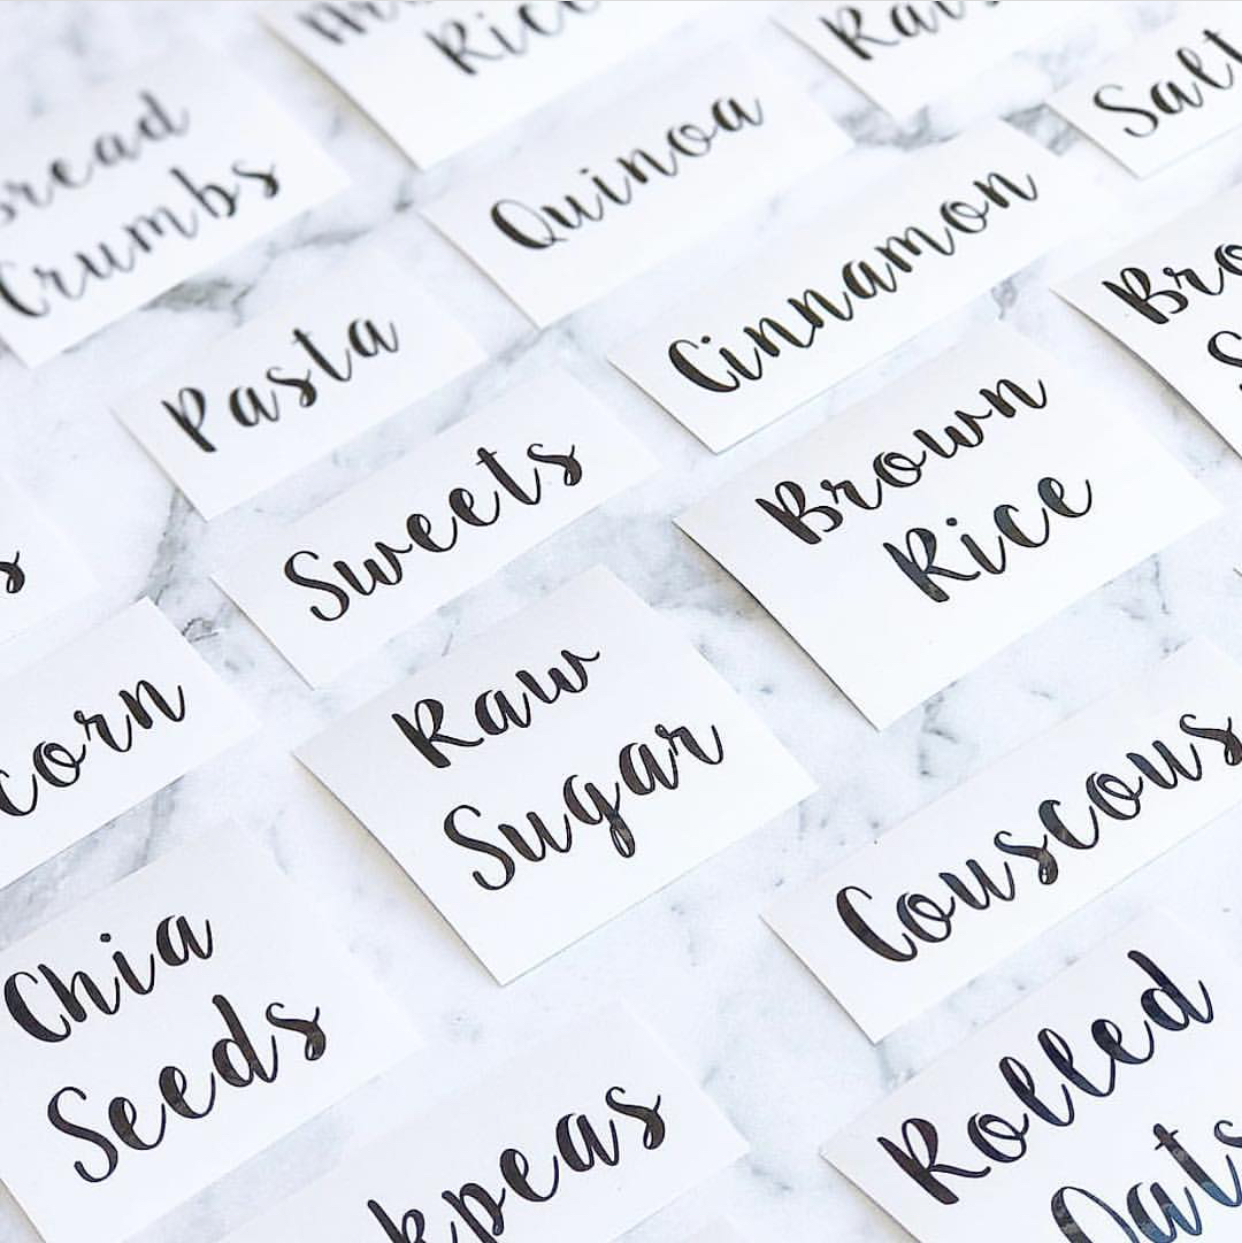 Rice
Salt
Bread
Crumbs
Quinoa
Cinnamon
Pasta
Sweets
Brown
Rice
corn
Raw
Sugar
Couscous
Chia
Seeds
kpeas
Rolled
Oats